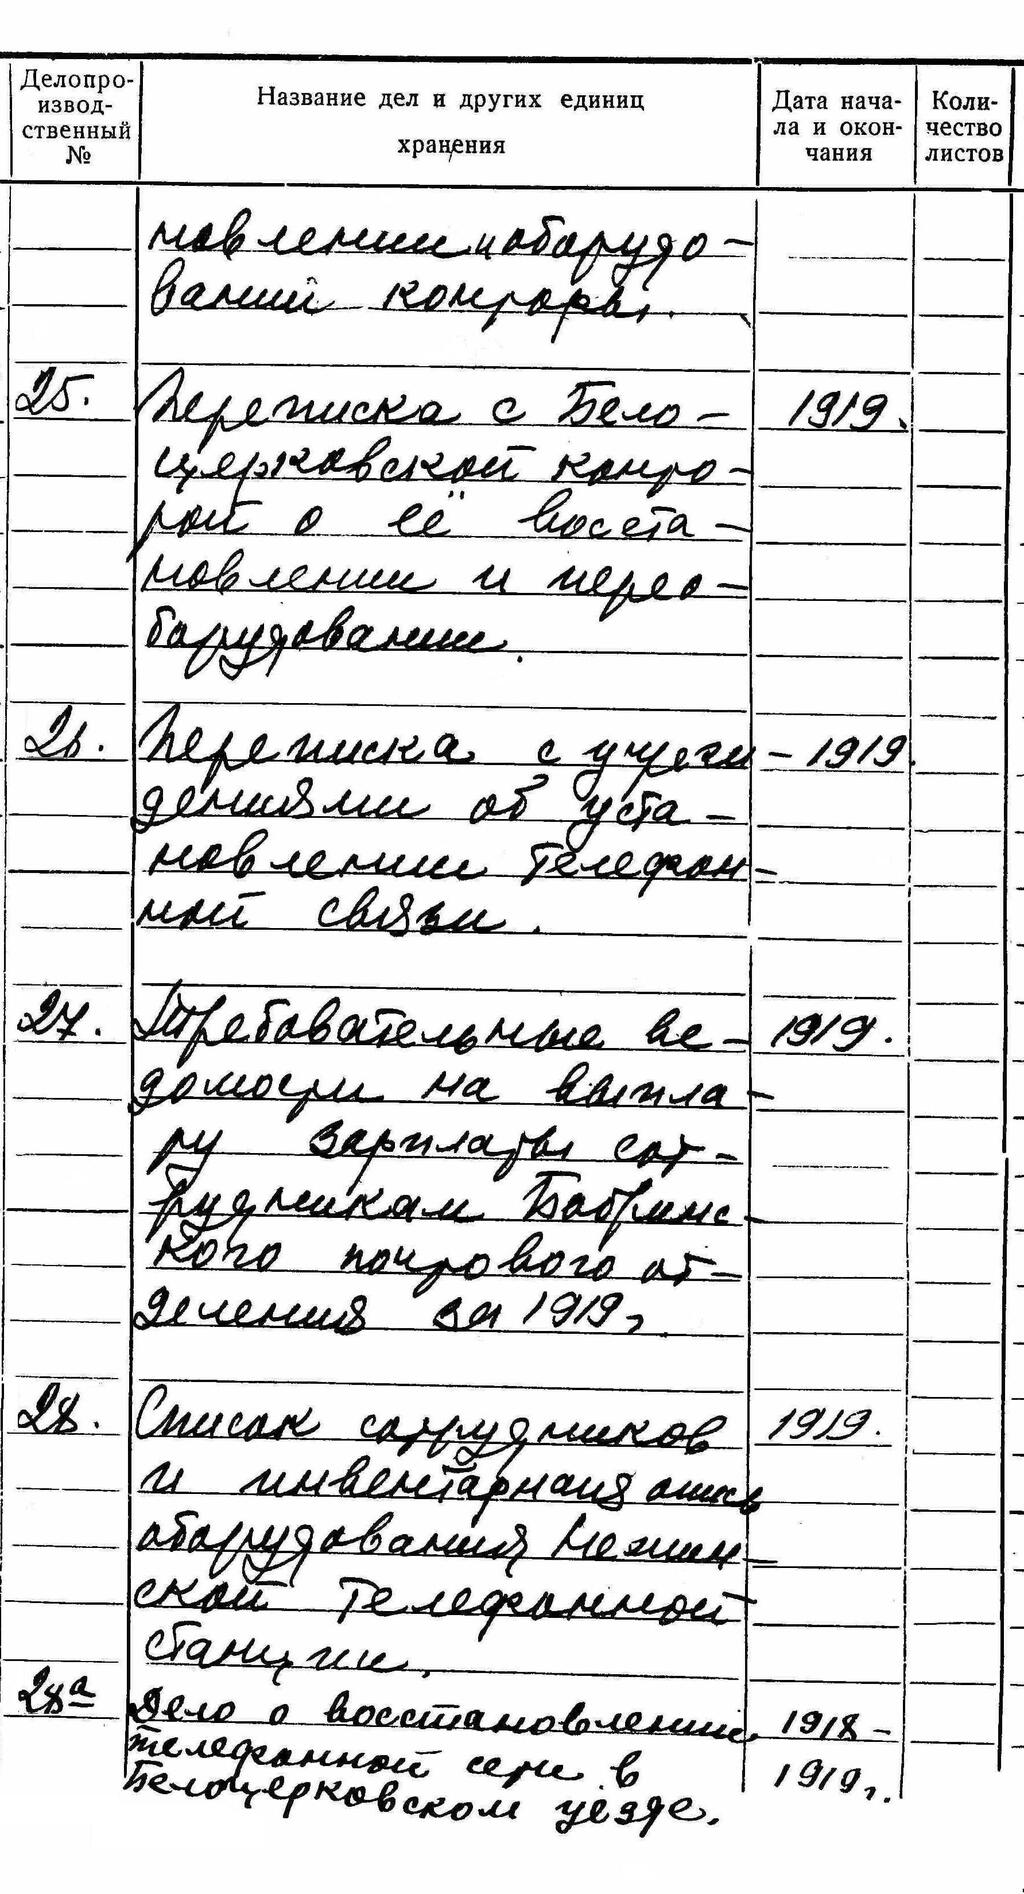 Делопро-
извод-
ственный
№
Название дел и других единиц
хранения
Дата нача-
ла и окон-
чания
Коли-
чество
листов
новлении и оборудо-
вании конторы.
25. Переписка с Бело- 1919.
церковской конто-
рой о её восста-
новлении и перео-
борудовании.
26. Переписка с учреж- 1919.
дениями об уста-
новлении телефон-
ной связи.
27. Требовательные ве- 1919.
домости на выпла-
ту зарплаты сот-
рудникам Бобринс-
кого почтового от-
деления за 1919г.
28. Список сотрудников 1919.
и инвентарная опись
оборудования Нежин-
ской телефонной
станции.
28а Дело о восстановлении 1918-
телефонной сети в 1919г.
Белоцерковском уезде.